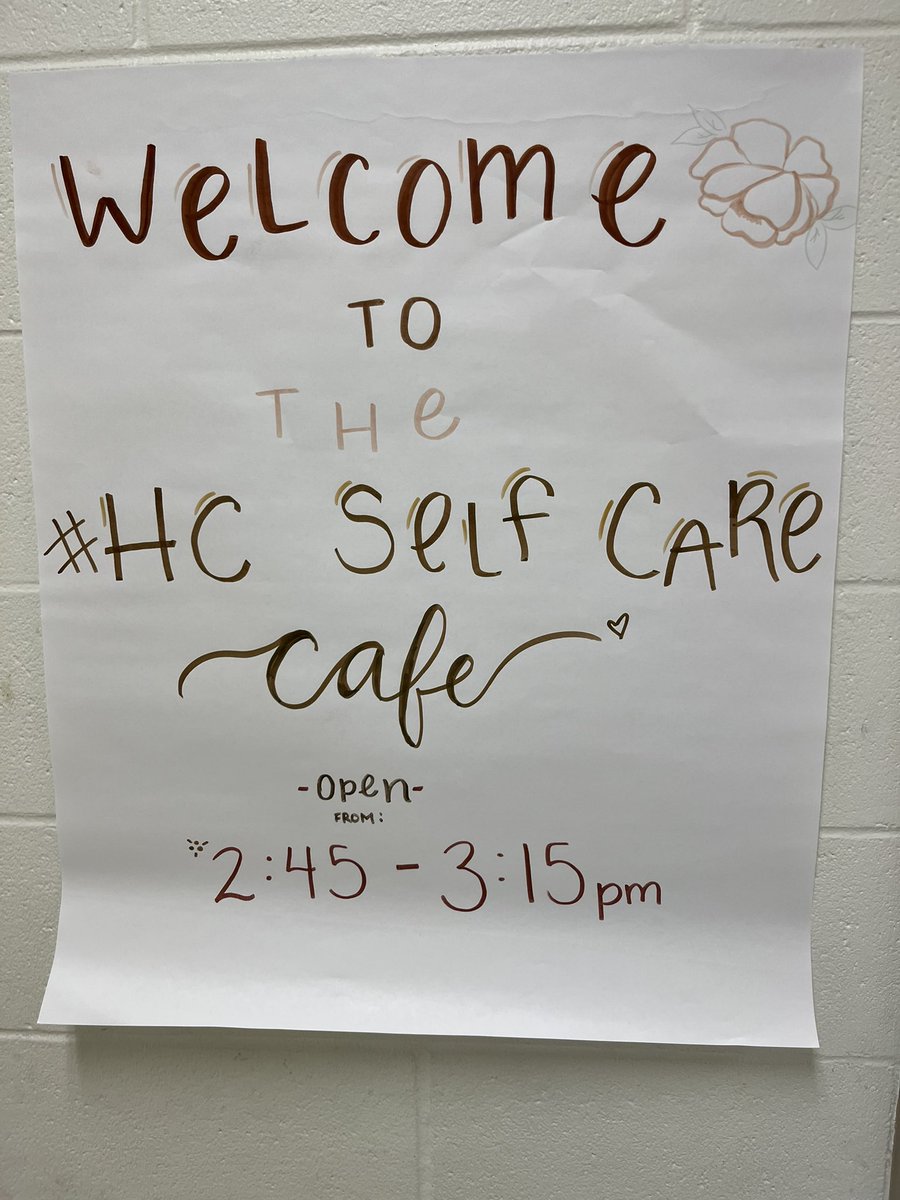 Welcome
TO
THe
#HC Self CARe
cafe
-open-
FROM:
2:45 - 3:15pm